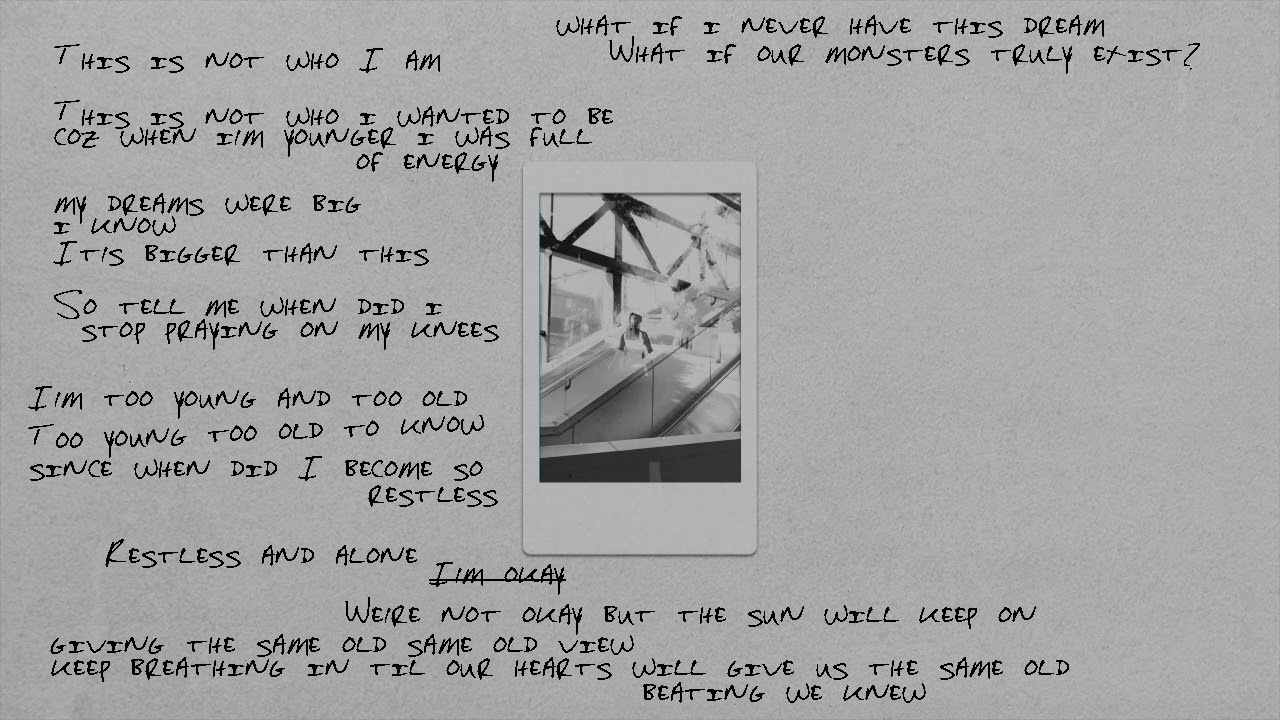 THIS IS NOT WHO I AM
THIS IS NOT WHO I WANTED TO BE
COZ WHEN I'M YOUNGER I WAS FULL
OF ENERGY
MY DREAMS WERE BIG
I KNOW
IT'S BIGGER THAN THIS
SO TELL ME WHEN DID I
STOP PRAYING ON MY KNEES
I'M TOO YOUNG AND TOO OLD
TOO YOUNG TOO OLD TO KNOW
SINCE WHEN DID I BECOME SO
RESTLESS
RESTLESS AND ALONE
I'M OKAY
WE'RE NOT OKAY BUT THE SUN WILL KEEP ON
GIVING THE SAME OLD SAME OLD VIEW
KEEP BREATHING IN TIL OUR HEARTS WILL GIVE US THE SAME OLD
BEATING WE KNEW
WHAT IF I NEVER HAVE THIS DREAM
WHAT IF OUR MONSTERS TRULY EXIST?